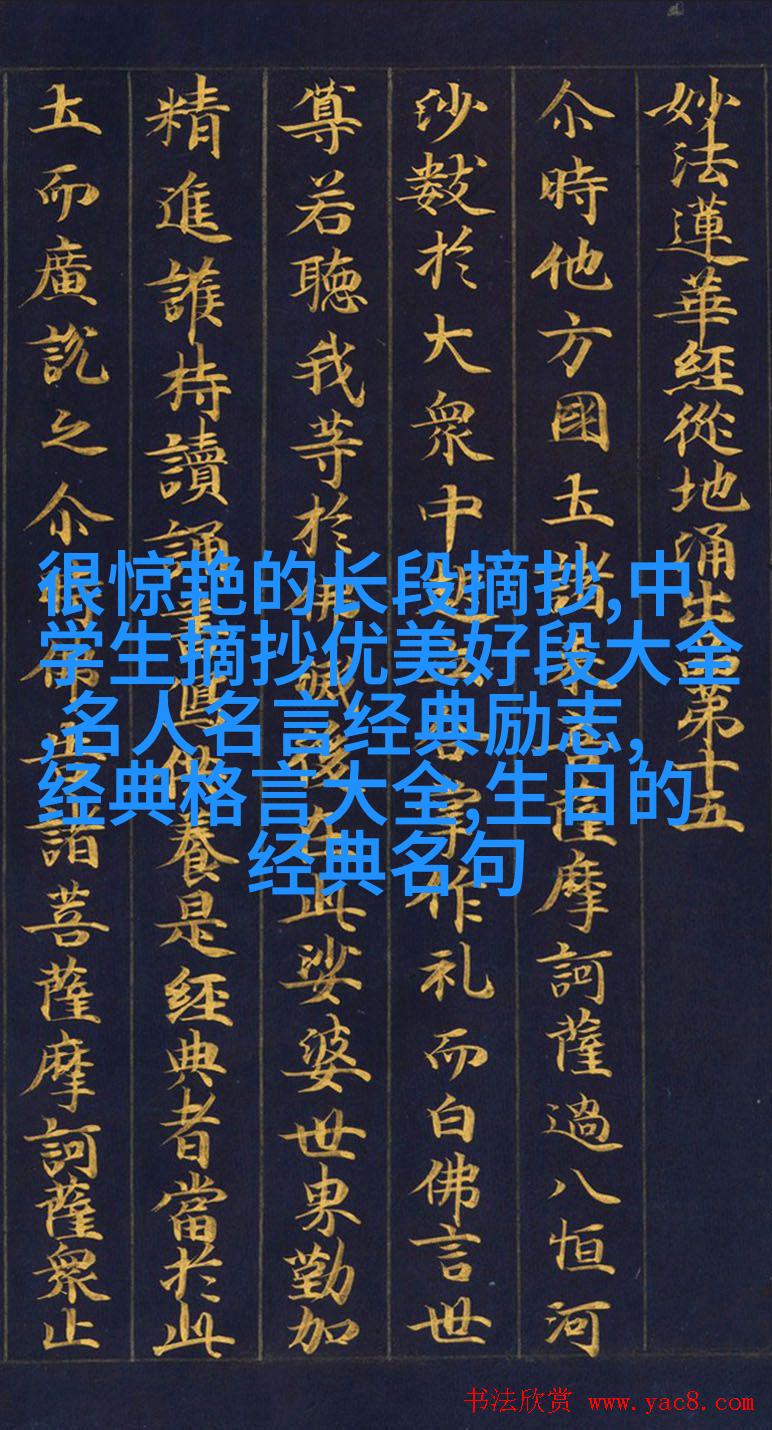 妙法蓮華經從地涌出品第十五
尒時他方國土諸來菩薩摩訶薩過八恒河
沙數於大眾中起立合掌作礼而白佛言世
尊若聽我等於佛滅後在此娑婆世界勤加
精進護持讀誦書寫供養是經典者當於此
土而廣說之尒時佛告諸菩薩摩訶薩眾止
很惊艳的长段摘抄,中
学生摘抄优美好段大全
,名人名言经典励志,
经典格言大全,生日的
经典名句
书法欣赏 www.yac8.com